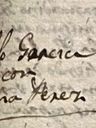 o Garcia
con
na Perez